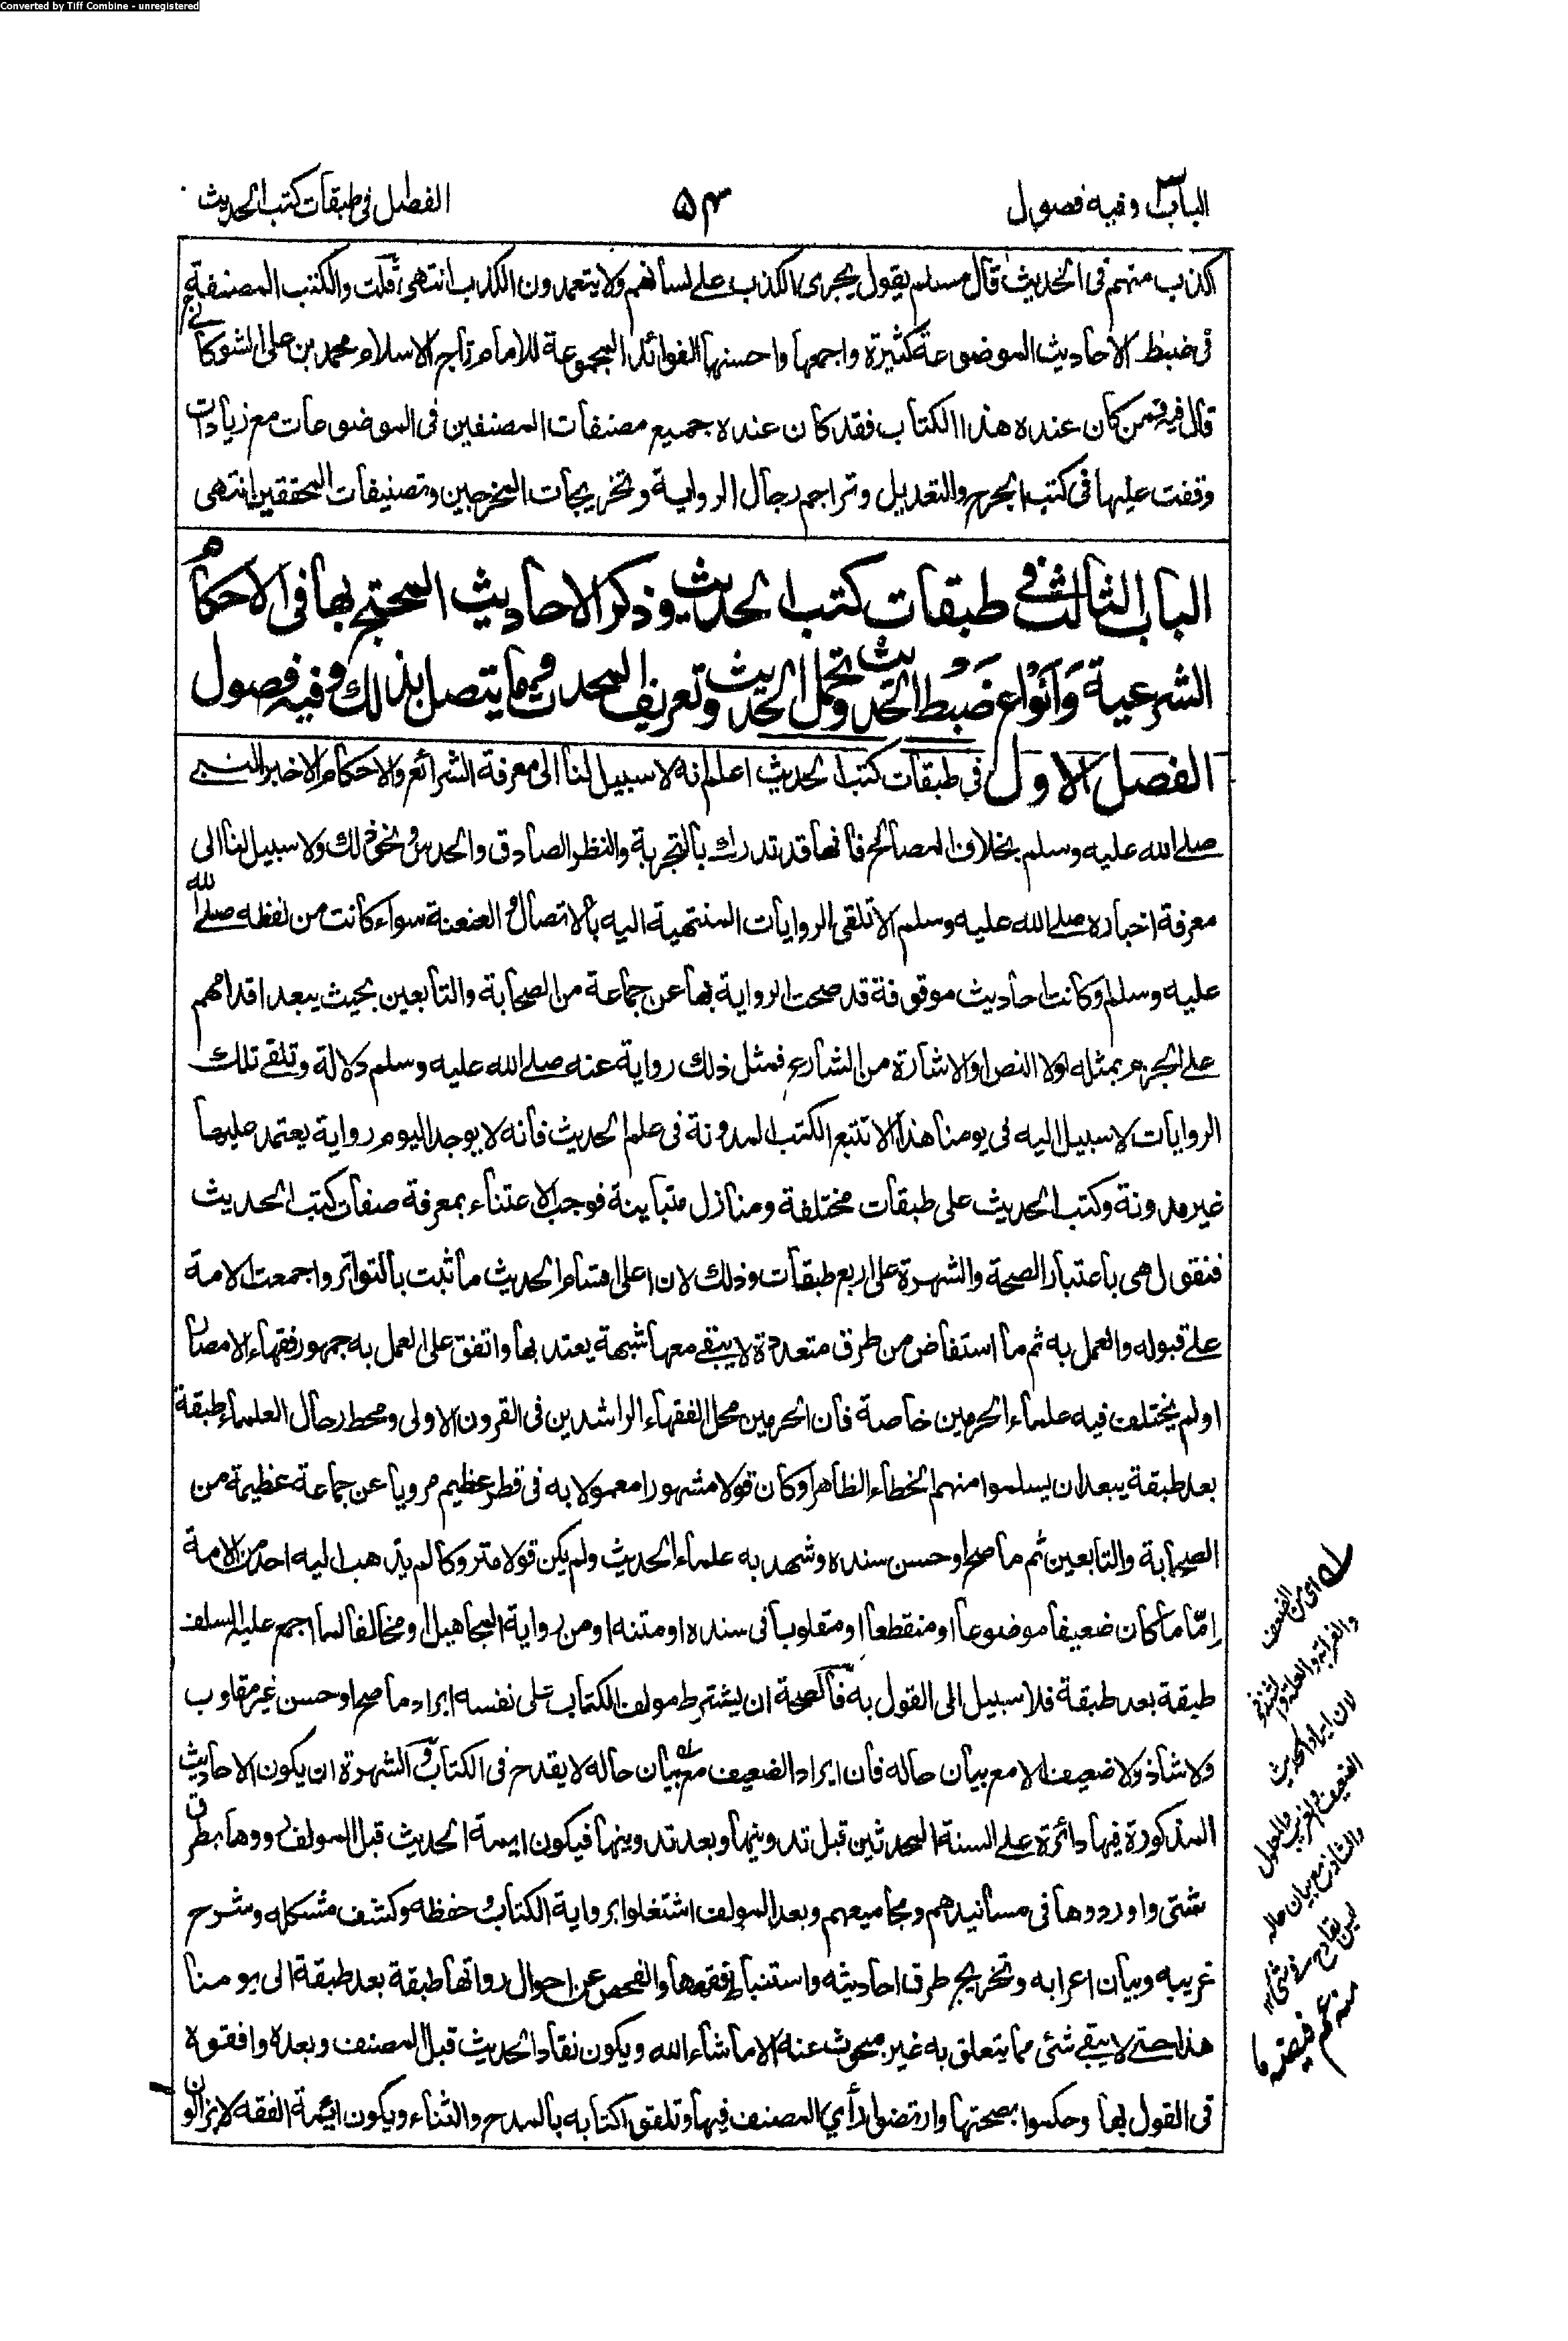 Converted by Tiff Combine - unregistered
الباب٣ وفيه فصول
٥٣
الفصل١ فى طبقات كتب الحديث
الكذب منهم فى الحديث قال مسلم يقول يجرى الكذب على لسانهم ولا يتعمدون الكذب انتهى قلت والكتب المصنفة
فى ضبط الاحاديث الموضوعة كثيرة واجمعها واحسنها الفوائد المجموعة للامام تاج الاسلام محمد بن على الشوكانى
قال فيه فمن كان عنده هذا الكتاب فقد كان عنده جميع مصنفات المصنفين فى الموضوعات مع زيادات
وقفت عليها فى كتب الجرح والتعديل وتراجم رجال الرواية وتخريجات المخرجين وتصنيفات المحققين انتهى
الباب الثالث فى طبقات كتب الحديث وذكر الاحاديث المحتج بها فى الاحكام
الشرعية وَاَنْوَاع ضَبْط الحديث وتحمل الحديث وتعريف المحدث وما يتصل بذلك وفيه فصول
الفصل الاول فى طبقات كتب الحديث اعلم انه لا سبيل لنا الى معرفة الشرائع والاحكام الا خبر النبى
صلى الله عليه وسلم بخلاف المصالح فانها قد تدرك بالتجربة والنظر الصادق والحدس ونحو ذلك ولا سبيل لنا الى
معرفة اخباره صلى الله عليه وسلم الا تلقى الروايات المنتهية اليه بالاتصال والعنعنة سواء كانت من لفظه صلى الله
عليه وسلم او كانت احاديث موقوفة قد صحت الرواية بها عن جماعة من الصحابة والتابعين بحيث يبعد اقدامهم
على الجزم بمثله لولا النص او الاشارة من الشارع فمثل ذلك رواية عنه صلى الله عليه وسلم دلالة وتلقى تلك
الروايات لا سبيل اليه فى يومنا هذا الا تتبع الكتب المدونة فى علم الحديث فانه لا يوجد اليوم رواية يعتمد عليها
غير مدونة وكتب الحديث على طبقات مختلفة ومنازل متباينة فوجب الاعتناء بمعرفة صفات كتب الحديث
فنقول هى باعتبار الصحة والشهرة على اربع طبقات وذلك لان اعلى اقسام الحديث ما ثبت بالتواتر واجمعت الامة
على قبوله والعمل به ثم ما استفاض من طرق متعددة لا يبقى معها شبهة يعتد بها واتفق على العمل به جمهور فقهاء الامصار
او لم يختلف فيه علماء الحرمين خاصة فان الحرمين محل الفقهاء الراشدين فى القرون الاولى ومحط رحال العلماء طبقة
بعد طبقة يبعد ان يسلموا منهم الخطاء الظاهر او كان قولا مشهورا معمولا به فى قطر عظيم مرويا عن جماعة عظيمة من
الصحابة والتابعين ثم ما صح او حسن سنده وشهد به علماء الحديث ولم يكن قولا متروكا لم يذهب اليه احد من الامة
اِمّا ما كان ضعيفا موضوعا او منقطعا او مقلوبا فى سنده او متنه او من رواية المجاهيل او مخالفا لما اجمع عليه السلف
طبقة بعد طبقة فلا سبيل الى القول به فالصحة ان يشترط مولف الكتاب على نفسه ايراد ما صح او حسن غير مقلوب
ولا شاذ ولا ضعيف الا مع بيان حاله فان ايراد الضعيف مع بيان حاله لا يقدح فى الكتاب والشهرة ان يكون الاحاديث
المذكورة فيها دائرة على السنة المحدثين قبل تدوينها وبعد تدوينها فيكون ايمة الحديث قبل المولف رووها بطرق
شتى واوردوها فى مسانيدهم ومجاميعهم وبعد المولف اشتغلوا برواية الكتاب وحفظه وكشف مشكله وشرح
غريبه وبيان اعرابه وتخريج طرق احاديثه واستنباط فقهها والفحص عن احوال رواتها طبقة بعد طبقة الى يومنا
هذا حتى لا يبقى شئى مما يتعلق به غير مبحوث عنه الا ما شاء الله ويكون نقاد الحديث قبل المصنف وبعده وافقوه
فى القول بها وحكموا بصحتها وارتضوا رأى المصنف فيها وتلقوا كتابه بالمدح والثناء ويكون ايمة الفقه لا يزالون
له اى من الضعف
والغرابة والعلة والشذوذ
لان ايراد الحديث
الضعيف والغريب والمعلول
والشاذ مع بيان حاله
ليس بقادح فى شئ ١٢